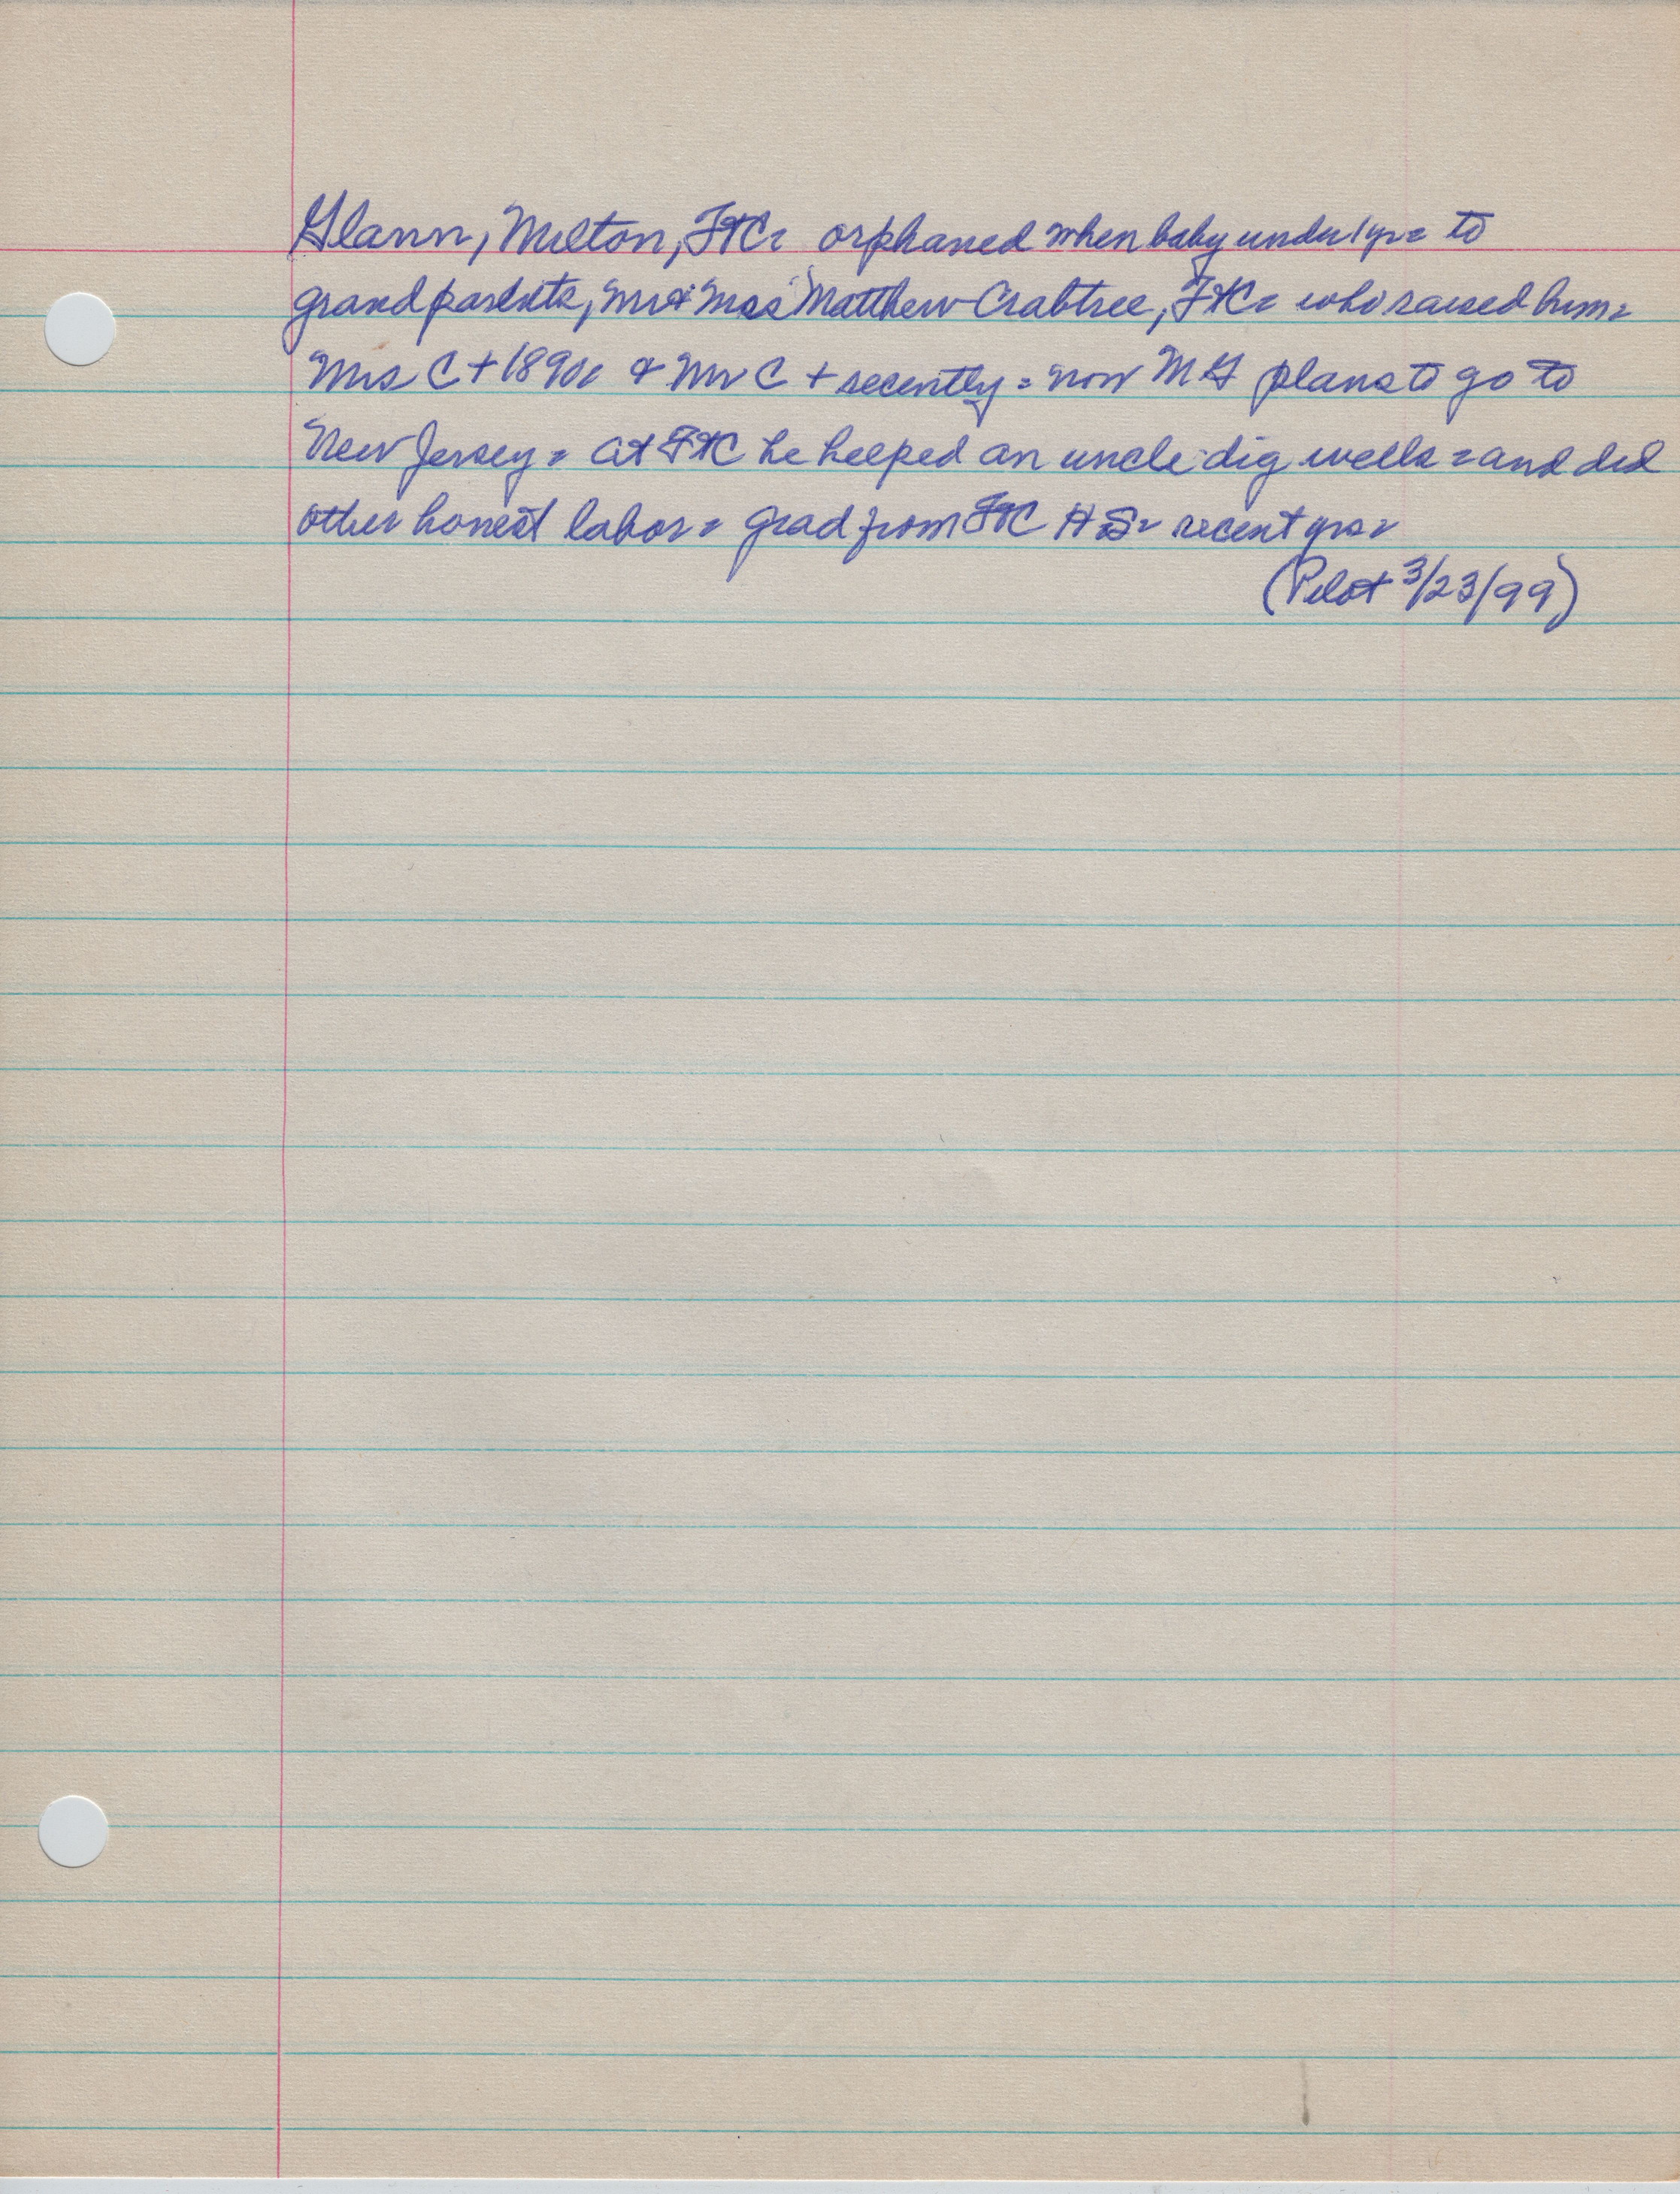 Glann, Milton, FtC = orphaned when baby under 1 yr = to
grandparents, Mr & Mrs Matthew Crabtree, FtC = who raised him =
Mrs C + 1890s & Mr C + recently = now MG plans to go to
New Jersey = at FtC he helped an uncle dig wells = and did
other honest labor = grad from FtC HS = recent yrs =
(Pilot 3/23/99)